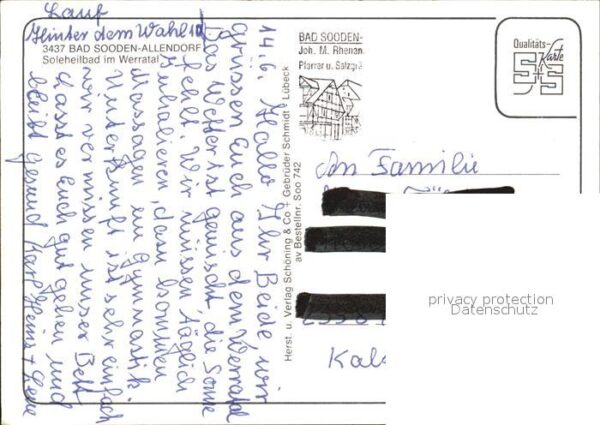 Lauf
Hinter dem Wahl 10
3437 BAD SOODEN-ALLENDORF
Soleheilbad im Werratal
14.6. Hallo Ihr Beide wir
grüssen Euch aus dem Werratal
Das Wetter ist gemischt, die Sonne
fehlt. Wir müssen täglich
inhalieren, dazu kommen
Massagen und Gymnastik
Unterkunft ist sehr einfach
wir vermissen unser Bett
Lasst es Euch gut gehen und
bleibt gesund Karl Heinz + Lene
Herst. u. Verlag Schöning & Co + Gebrüder Schmidt · Lübeck
av Bestellnr. Soo 742
BAD SOODEN-
Joh. M. Rhenan.
Pfarrer u. Salzgrä
Qualitäts-
Karte
S+S
An Familie
Kals
privacy protection
Datenschutz